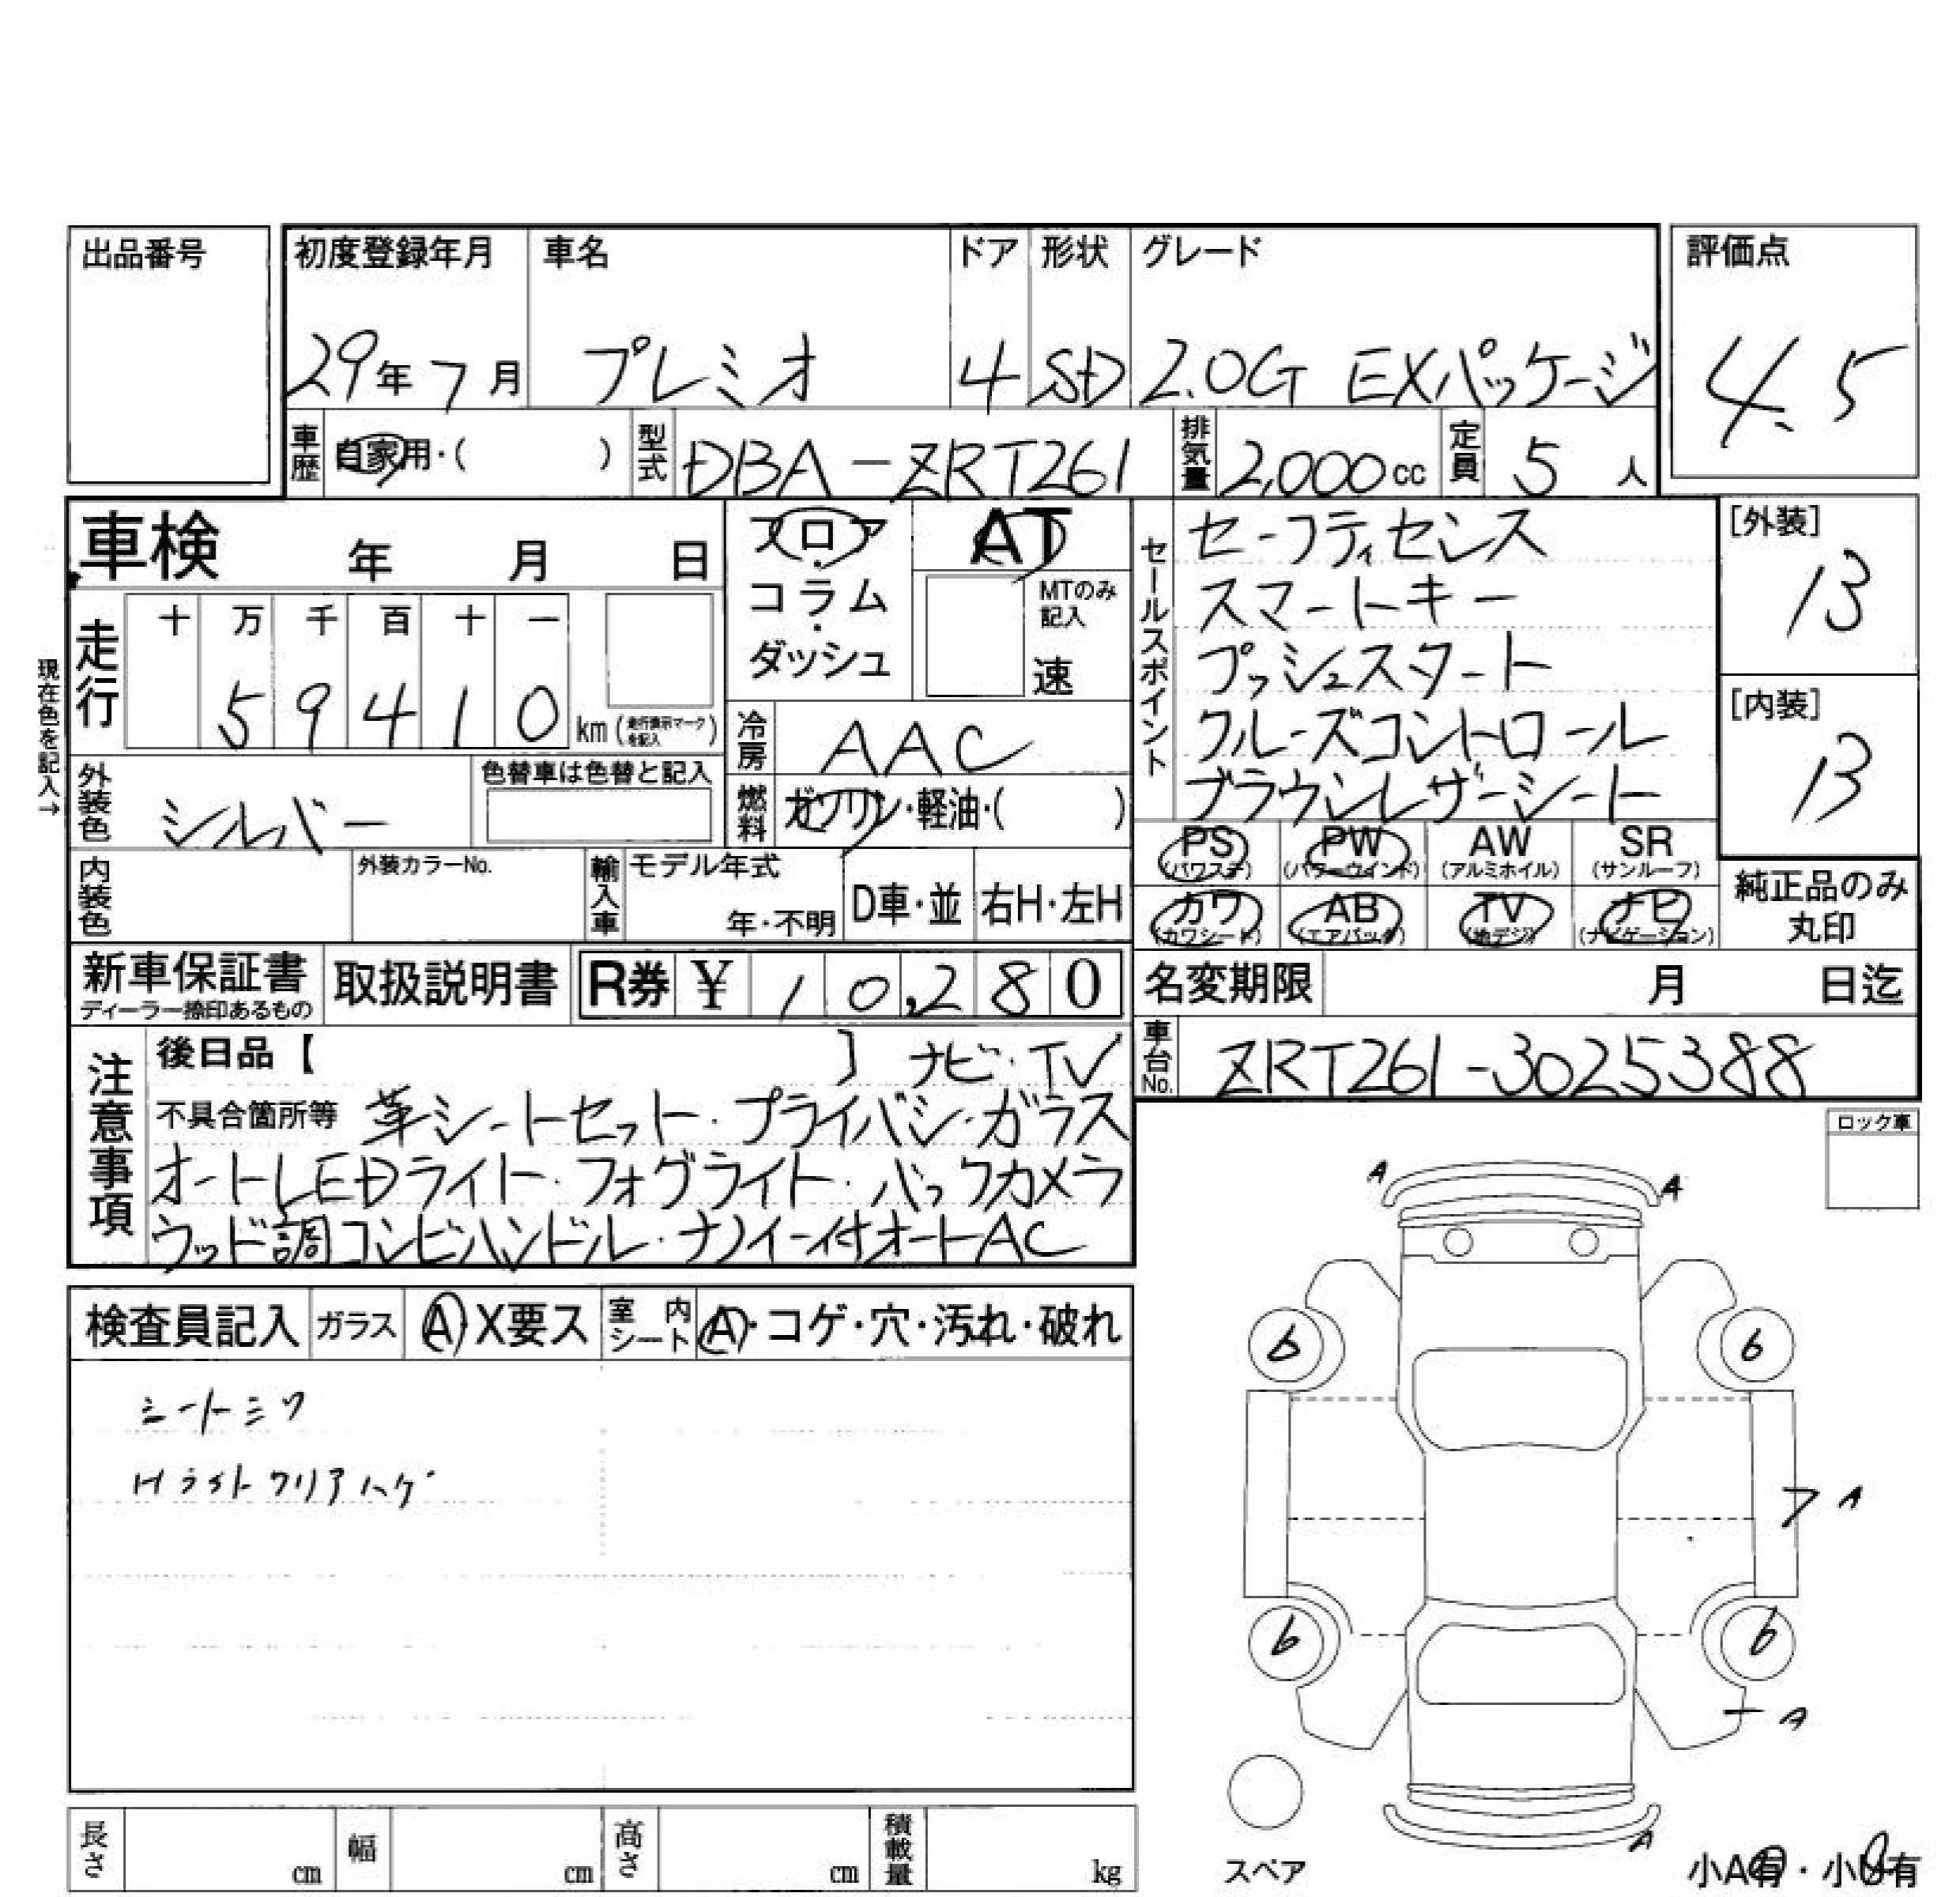 出品番号
初度登録年月 車名 ドア 形状 グレード 評価点
29年7月 プレミオ 4 SD 2.0G EXパッケージ 4.5
車歴 自家用・( ) 型式 DBA-ZRT261 排気量 2,000cc 定員 5人
車検 年 月 日
フロア・コラム・ダッシュ
AT
MTのみ記入
速
セールスポイント
セーフティセンス
スマートキー
プッシュスタート
クルーズコントロール
ブラウンレザーシート
[外装]
13
[内装]
13
現在色を記入→
走行 十 万 千 百 十 一
5 9 4 1 0 km (走行表示マークを記入)
冷房 AAC
外装色 シルバー 色替車は色替と記入
燃料 ガソリン・軽油・( )
PS (パワステ) PW (パワーウインド) AW (アルミホイル) SR (サンルーフ)
カワ (カワシート) AB (エアバック) TV (地デジ) ナビ (ナビゲーション)
純正品のみ
丸印
内装色 外装カラーNo. 輸入車 モデル年式 年・不明 D車・並 右H・左H
新車保証書 ディーラー捺印あるもの 取扱説明書 R券 ¥ 10,280
名変期限 月 日迄
車台No. ZRT261-3025388
注意事項
後日品【 】 ナビ・TV
不具合箇所等 革シートセット・プライバシーガラス
オートLEDライト・フォグライト・バックカメラ
ウッド調コンビハンドル・ナノイー付オートAC
ロック車
検査員記入 ガラス A・X要ス 室内シート A・コゲ・穴・汚れ・破れ
シートシワ
Hライトクリアハゲ
A A
6 6
A
6 6
A
A
スペア
小A有・小U有
長さ cm 幅 cm 高さ cm 積載量 kg